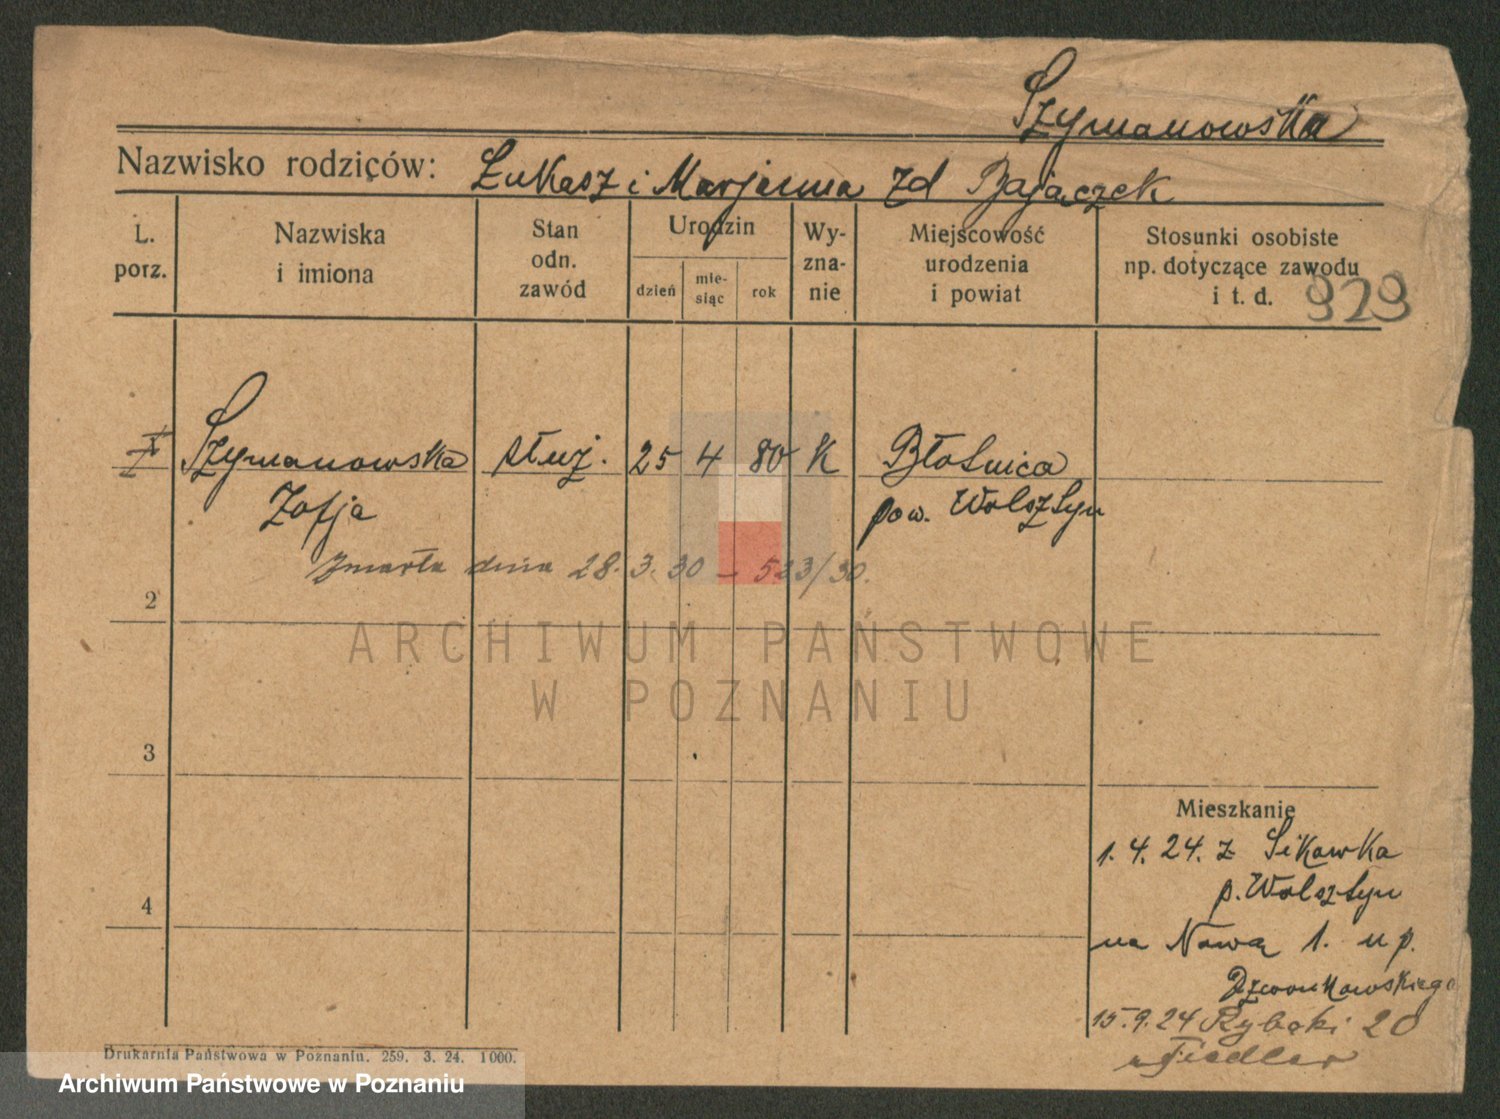 Szymanowska
Nazwisko rodziców: Łukasz i Marjanna zd Bajączek
L. porz.
Nazwiska i imiona
Stan odn. zawód
Urodzin
dzień
mie-
siąc
rok
Wy-
zna-
nie
Miejscowość
urodzenia
i powiat
Stosunki osobiste
np. dotyczące zawodu
i t. d. 929
1 Szymanowska służ. 25 4 80 K Błotnica
Zofja pow. Wolsztyn
Zmarła dnia 28. 3. 30 – 523/30.
2
ARCHIWUM PAŃSTWOWE
W POZNANIU
3
Mieszkanie
1. 4. 24. z Sikawka
p. Wolsztyn
4
na Nową 1. u p.
Dzwonkowskiego
15. 9. 24 Rybaki 20
u Fiedler
Drukarnia Państwowa w Poznaniu. 259. 3. 24. 1000.
Archiwum Państwowe w Poznaniu